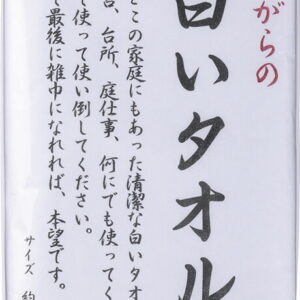 がらの
白いタオル
どこの家庭にもあった清潔な白いタオ
台、台所、庭仕事、何にでも使ってく
て使って使い倒してください。
で最後に雑巾になれれば、本望です。
サイズ 約